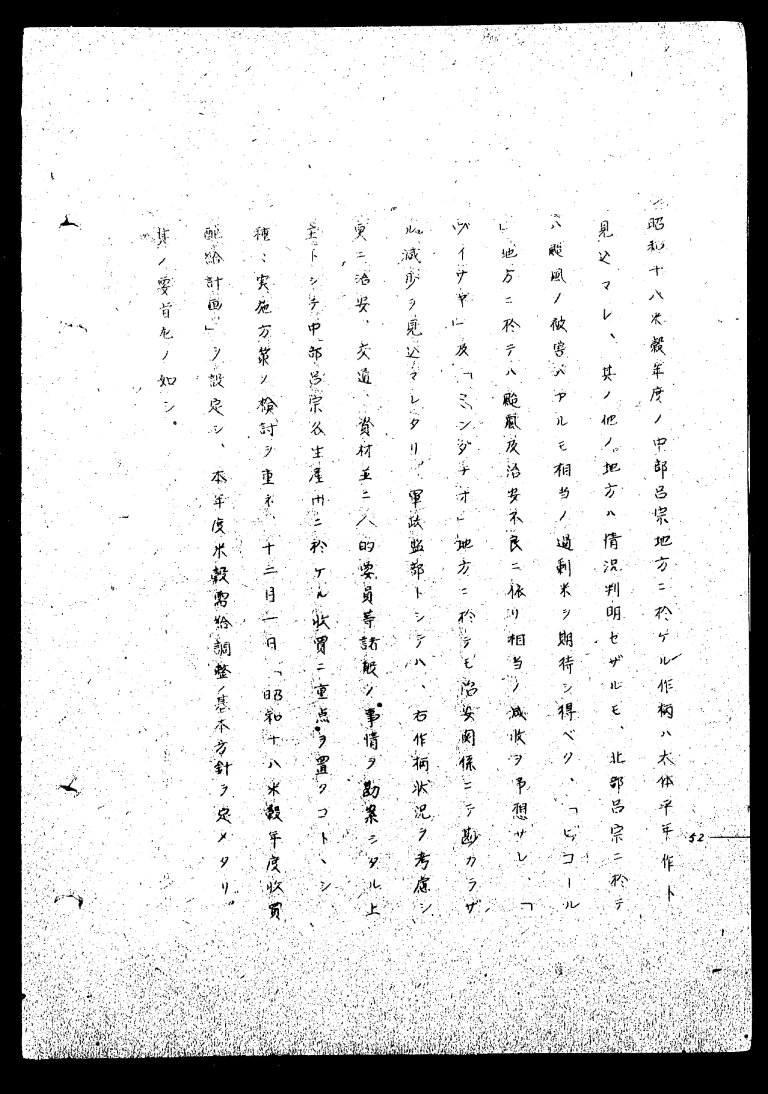 昭和十八米穀年度ノ中部呂宗地方ニ於ケル作柄ハ大体平年作ト
見込マレ、其ノ他ノ地方ハ情況判明セザルモ、北部呂宗ニ於テ
ハ颱風ノ被害ハアルモ相当ノ過剰米ヲ期待シ得ベク、「ビコール
」地方ニ於テハ颱風及治安不良ニ依リ相当ノ減収ヲ予想サレ、「
ヴイサヤ」及「ミンダナオ」地方ニ於テモ治安関係ニテ尠カラザ
ル減少ヲ見込マレタリ、軍政監部トシテハ、右作柄状況ヲ考慮シ
更ニ治安、交通、資材並ニ人的要員等諸般ノ事情ヲ勘案シタル上
主トシテ中部呂宗各生産州ニ於ケル收買ニ重点ヲ置クコトヽシ
種々実施方策ノ検討ヲ重ネ、十二月一日「昭和十八米穀年度收買
配給計画」ヲ設定シ、本年度米穀需給調整ノ基本方針ヲ定メタリ。
其ノ要旨左ノ如シ。
52